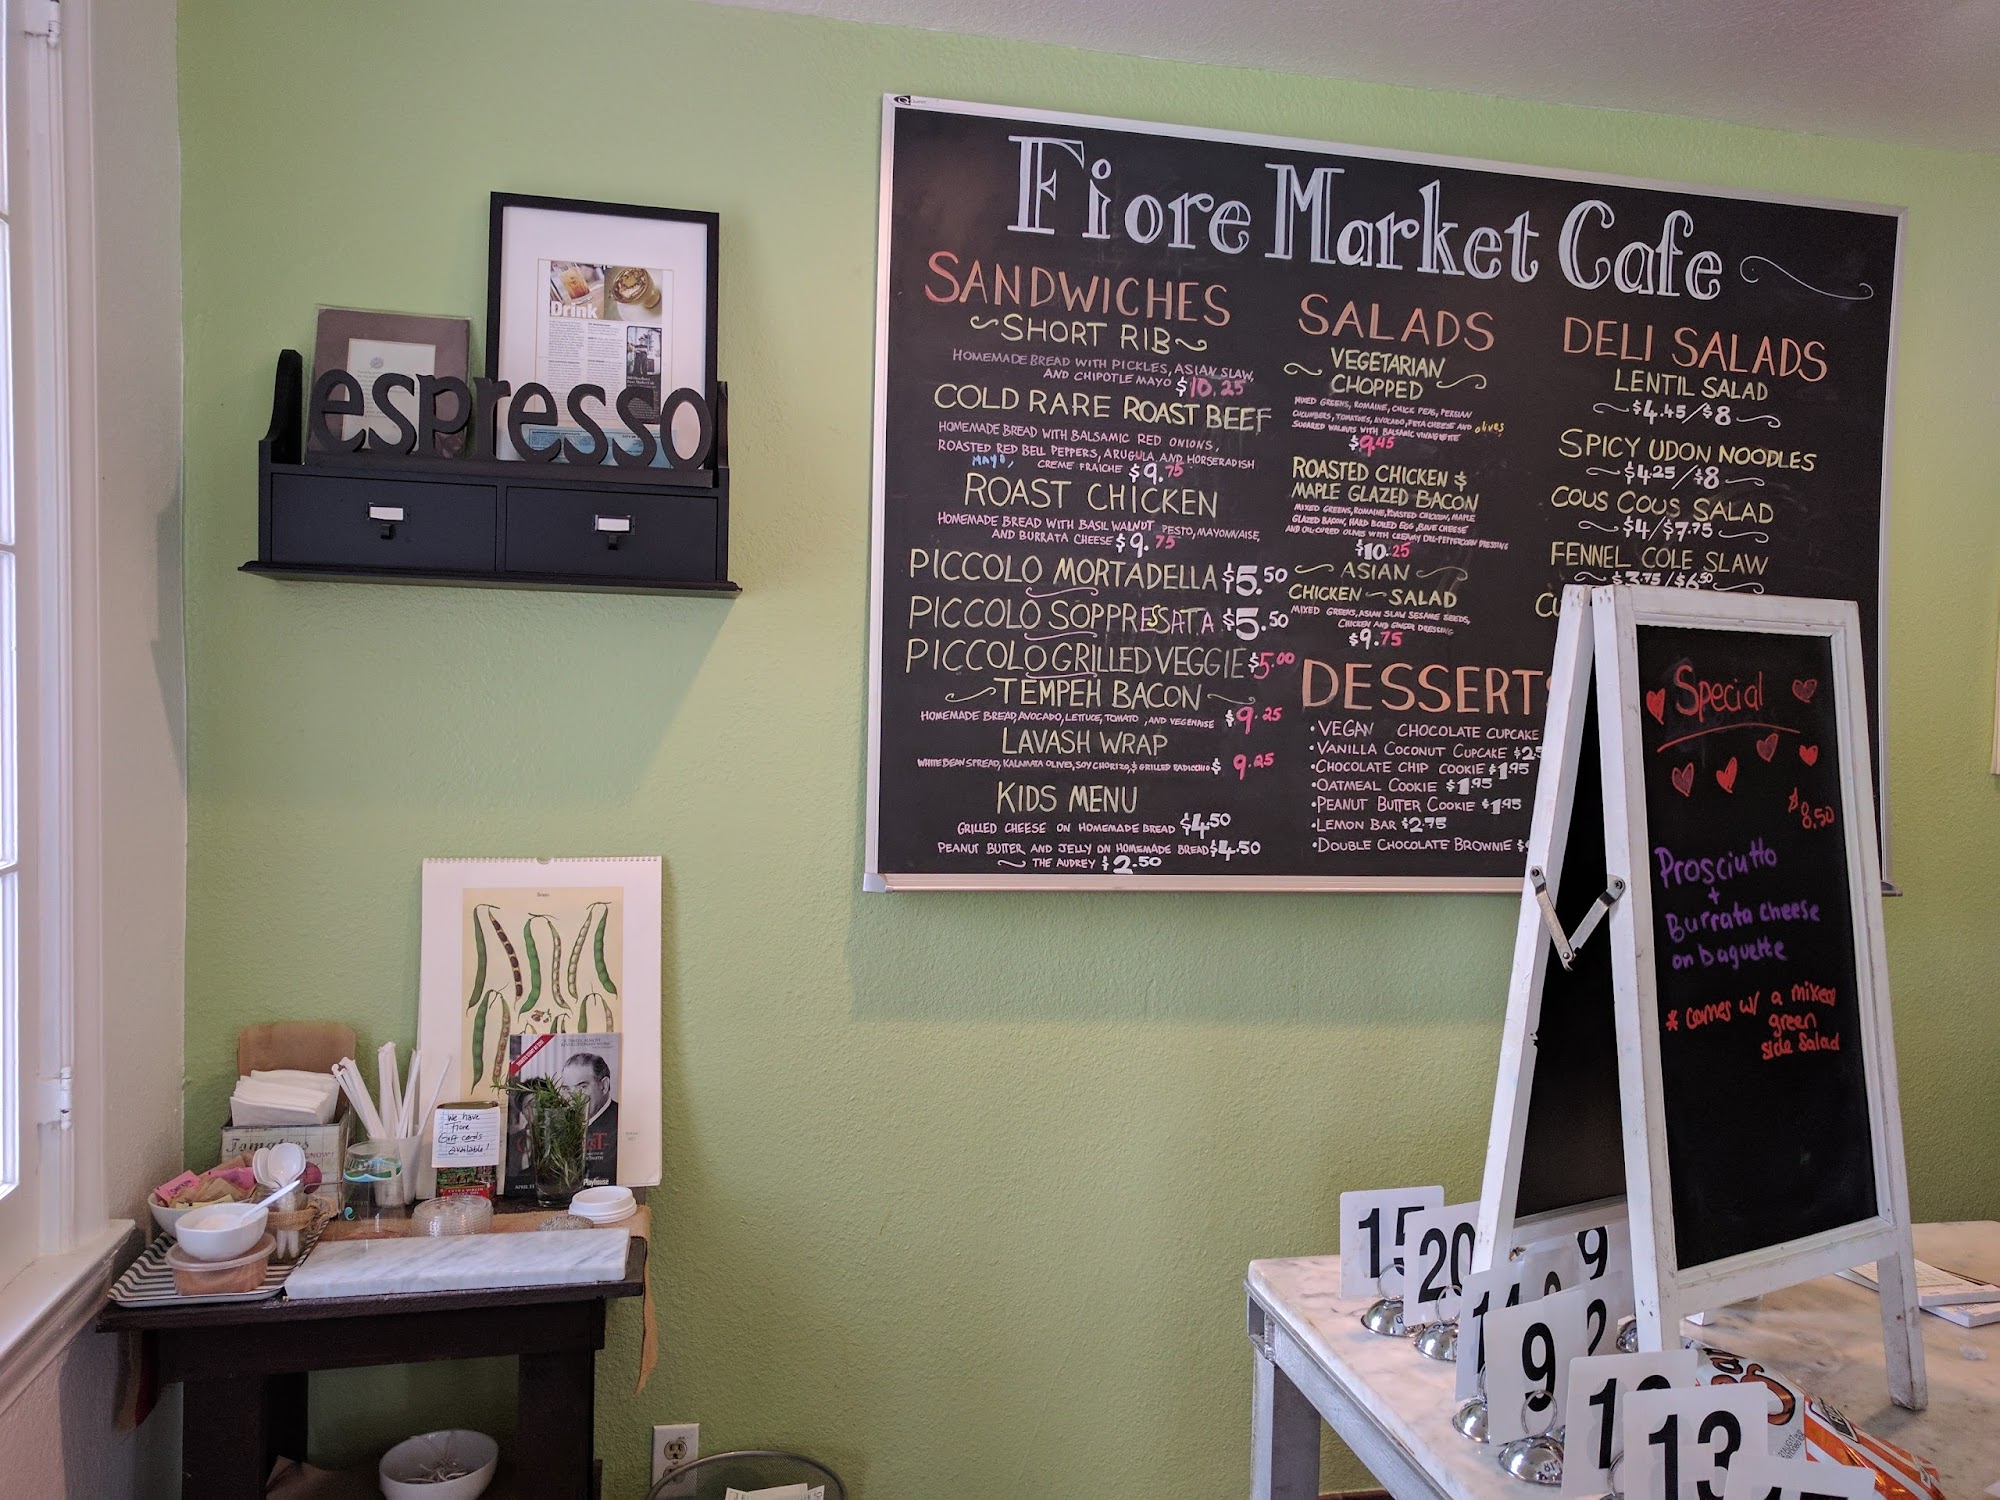 Fiore Market Cafe
SANDWICHES
SHORT RIB
HOMEMADE BREAD WITH PICKLES, ASIAN SLAW,
AND CHIPOTLE MAYO $10.25
COLD RARE ROAST BEEF
HOMEMADE BREAD WITH BALSAMIC RED ONIONS,
ROASTED RED BELL PEPPERS, ARUGULA AND HORSERADISH
MAYO, CREME FRAICHE $9.75
ROAST CHICKEN
HOMEMADE BREAD WITH BASIL WALNUT PESTO, MAYONNAISE,
AND BURRATA CHEESE $9.75
PICCOLO MORTADELLA $5.50
PICCOLO SOPPRESSATA $5.50
PICCOLO GRILLED VEGGIE $5.00
TEMPEH BACON
HOMEMADE BREAD, AVOCADO, LETTUCE, TOMATO, AND VEGENAISE $9.25
LAVASH WRAP
WHITE BEAN SPREAD, KALAMATA OLIVES, SOY CHORIZO, & GRILLED RADICCHIO $9.25
KIDS MENU
GRILLED CHEESE ON HOMEMADE BREAD $4.50
PEANUT BUTTER AND JELLY ON HOMEMADE BREAD $4.50
THE AUDREY $2.50
SALADS
VEGETARIAN
CHOPPED
MIXED GREENS, ROMAINE, CHICK PEAS, PERSIAN
CUCUMBERS, TOMATOES, AVOCADO, FETA CHEESE AND olives,
SUGARED WALNUTS WITH BALSAMIC VINAIGRETTE
$9.45
ROASTED CHICKEN &
MAPLE GLAZED BACON
MIXED GREENS, ROMAINE, ROASTED CHICKEN, MAPLE
GLAZED BACON, HARD BOILED EGG, BLUE CHEESE
AND OIL-CURED OLIVES WITH CREAMY DILL-PEPPERCORN DRESSING
$10.25
ASIAN
CHICKEN SALAD
MIXED GREENS, ASIAN SLAW SESAME SEEDS,
CHICKEN AND GINGER DRESSING
$9.75
DESSERTS
•VEGAN CHOCOLATE CUPCAKE
•VANILLA COCONUT CUPCAKE $2.5
•CHOCOLATE CHIP COOKIE $1.95
•OATMEAL COOKIE $1.95
•PEANUT BUTTER COOKIE $1.95
•LEMON BAR $2.75
•DOUBLE CHOCOLATE BROWNIE $
DELI SALADS
LENTIL SALAD
$4.45/$8
SPICY UDON NOODLES
$4.25/$8
COUS COUS SALAD
$4/$7.75
FENNEL COLE SLAW
$3.75/$6.50
Special
$8.50
Prosciutto
+
Burrata cheese
on baguette
* comes w/ a mixed
green
side salad
Drink
espresso
We have
Fiore
Gift cards
available!
Tomatoes
Playhouse
15
20
9
9
13